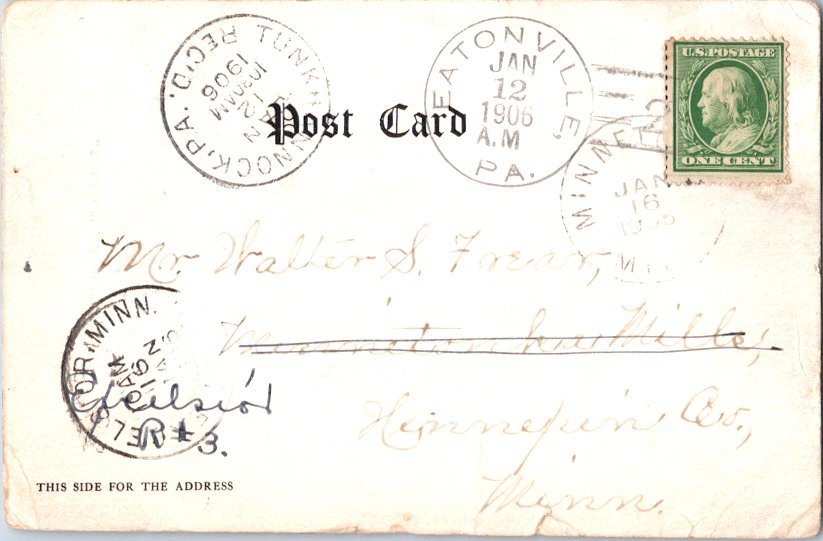 TUNKHANNOCK, PA. REC'D.
JAN 12 1030AM 1906
EATONVILLE, PA.
JAN
12
1906
A.M
U.S. POSTAGE
ONE CENT
Post Card
MINNET
JAN
16
1906
MI
Mr. Walter S. Frear,
Minnetonka Mills,
EXCELSIOR, MINN.
AM
16
Excelsior
R # 3.
Hennepin Co.,
Minn.
THIS SIDE FOR THE ADDRESS